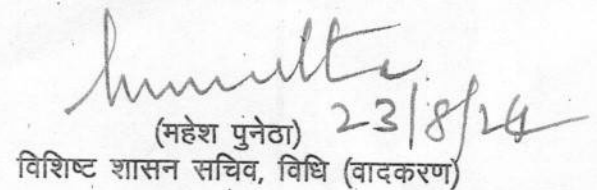 (महेश पुनेठा) 23/8/24
विशिष्ट शासन सचिव, विधि (वादकरण)